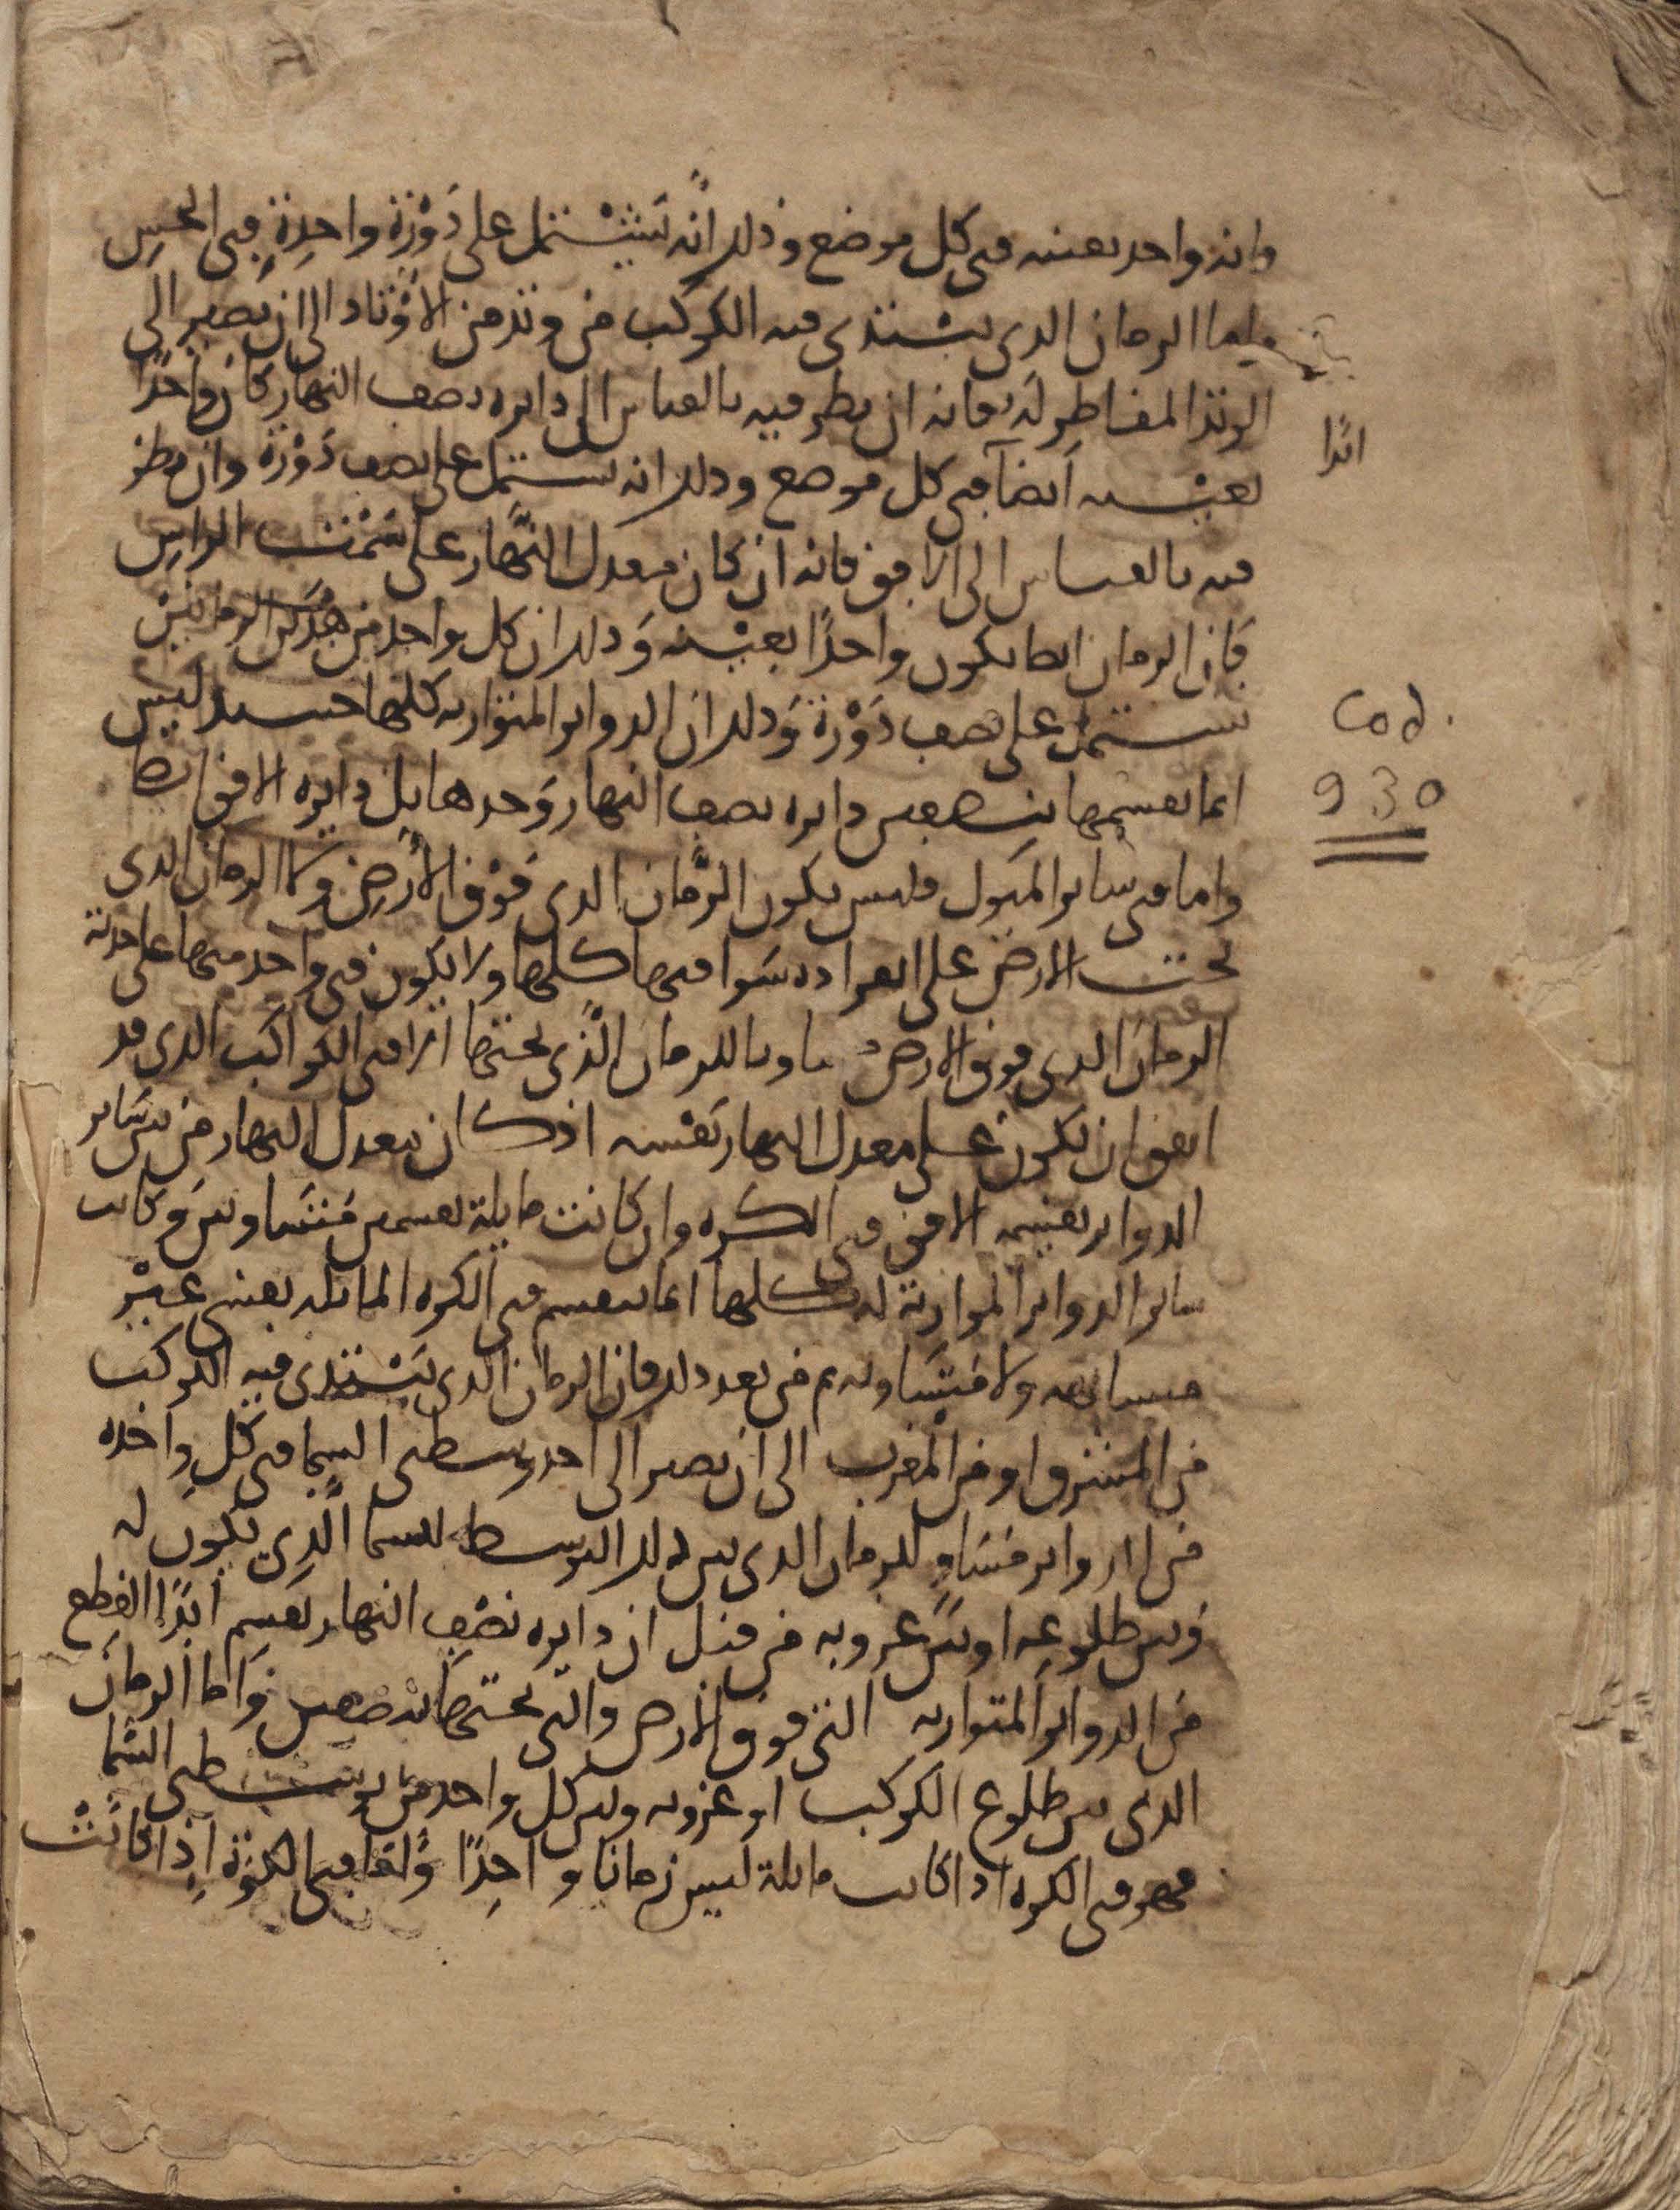 وانه واحد بعينه في كل موضع وذلك انه يشتمل على دَوْرَة واحِدةٍ في الحس
واما الزمان الذي يبتدي فيه الكوكب من وتد من الاوتاد الى ان يصير الى
الوتد المقاطر له فانه ان نظر فيه بالقياس الى دايره نصف النهار كان واحدًا
ابدًا
بعينه ايضا في كل موضع وذلك انه يشتمل على نصف دَوْرَة وان نظر
فيه بالقياس الى الافق فانه ان كان معدل النهار على سَمْت الراس
فان الزمان ايضا يكون واحدًا بعينه وذلك ان كل واحد من هذين الزمانين
يشتمل على نصف دَوْرَة وذلك ان الدواير المتوازيه كلها حينيد ليس
Cod.
انما يقسمها بنصفين دايره نصف النهار وحدها بل دايره الافق ايضا
930
واما في ساير الميول فليس يكون الزمان الذي فوق الأرض ولا الزمان الذي
تحت الارض على انفراده سوا فيها كلها ولا يكون في واحد منها على حدته
الزمان الذي فوق الارض مساويا للزمان الذي تحتها الا في الكواكب الذي قد
اتفق ان تكون على معدل النهار نفسه اذ كان معدل النهار من بين ساير
الدواير يقسمه الافق في الكره وان كانت مايلة بقسمين متساويين وكانت
ساير الدواير الموازية له كلها انما تنقسم في الكره المايله بقسي غير
متشابهه ولا متساويه ثم من بعد ذلك فان الزمان الذي يبتدي فيه الكوكب
من المشرق او من المغرب الى ان يصير الى احد وسطي السما في كل واحده
من الدواير مساو للزمان الذي بين ذلك الوسط للسما الذي يكون له
وبين طلوعه او بين غروبه من قبل ان دايره نصف النهار تقسم ابدًا القطع
من الدواير المتوازيه التي فوق الارض والتي تحتها بنصفين واما الزمان
الذي بين طلوع الكوكب او غروبه وبين كل واحد من وسطي السما
فهو في الكره اذا كانت مايلة ليس زمانا واحِدًا واما في الكرة اذا كانت